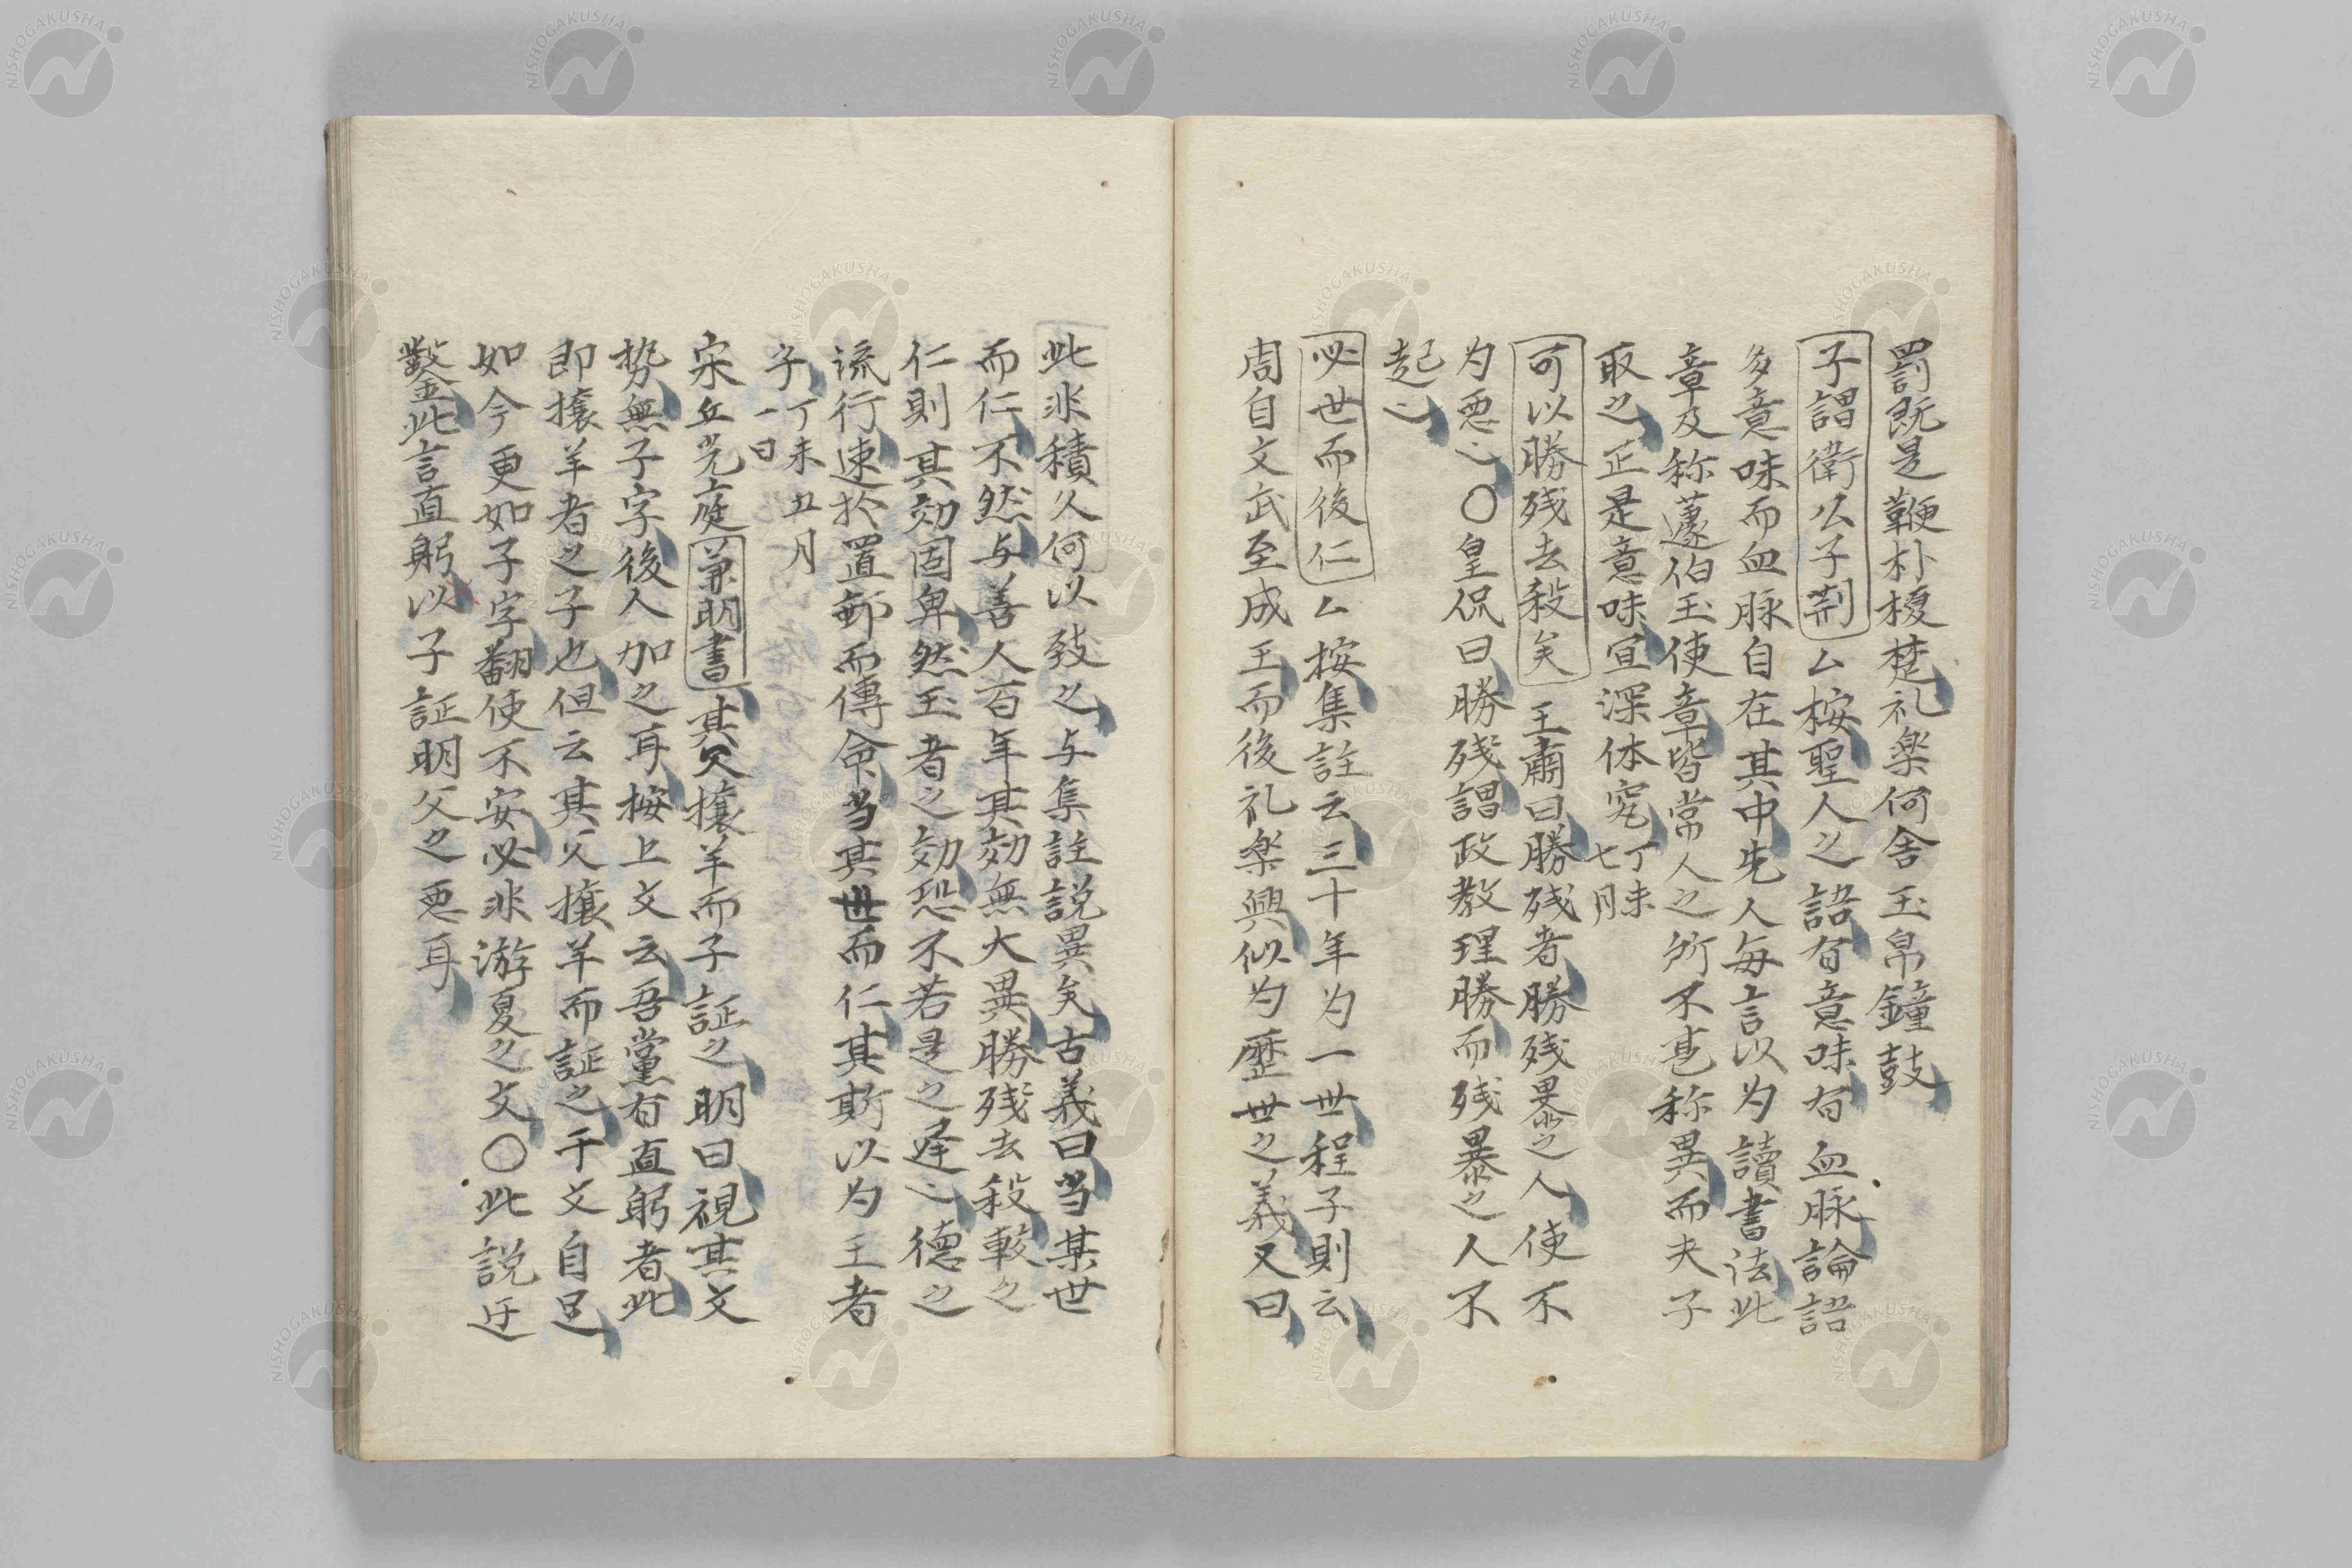 罰既是鞭朴榎楚礼楽何舎玉帛鐘鼓
子謂衛公子荆ム按聖人之語有意味有血脉論語
多意味而血脉自在其中先人毎言以为讀書法此
章及称蘧伯玉使章皆常人之所不甚称異而夫子
取之正是意味宜深体究丁未七月
可以勝残去殺矣 王肅曰勝残者勝残暴之人使不
为悪也〇皇侃曰勝残謂政教理勝而残暴之人不
起也
必世而後仁ム按集註云三十年为一世程子則云
周自文武至成王而後礼楽興似为歴世之義又曰
此非積久何以致之与集註説異矣古義曰当某世
而仁不然与善人百年其効無大異勝残去殺較之
仁則其効固卑然王者之効恐不若是之遅也德之
流行速於置郵而傳命当其世而仁其斯以为王者
乎丁未五月一日
宋丘光庭兼明書其父攘羊而子証之明曰視其文
势無子字後人加之耳按上文云吾黨有直躬者此
即攘羊者之子也但云其父攘羊而証之于文自足
如今更如子字翻使不安必非游夏之文〇此説迂
鑿此言直躬以子証明父之悪耳
NISHOGAKUSHA